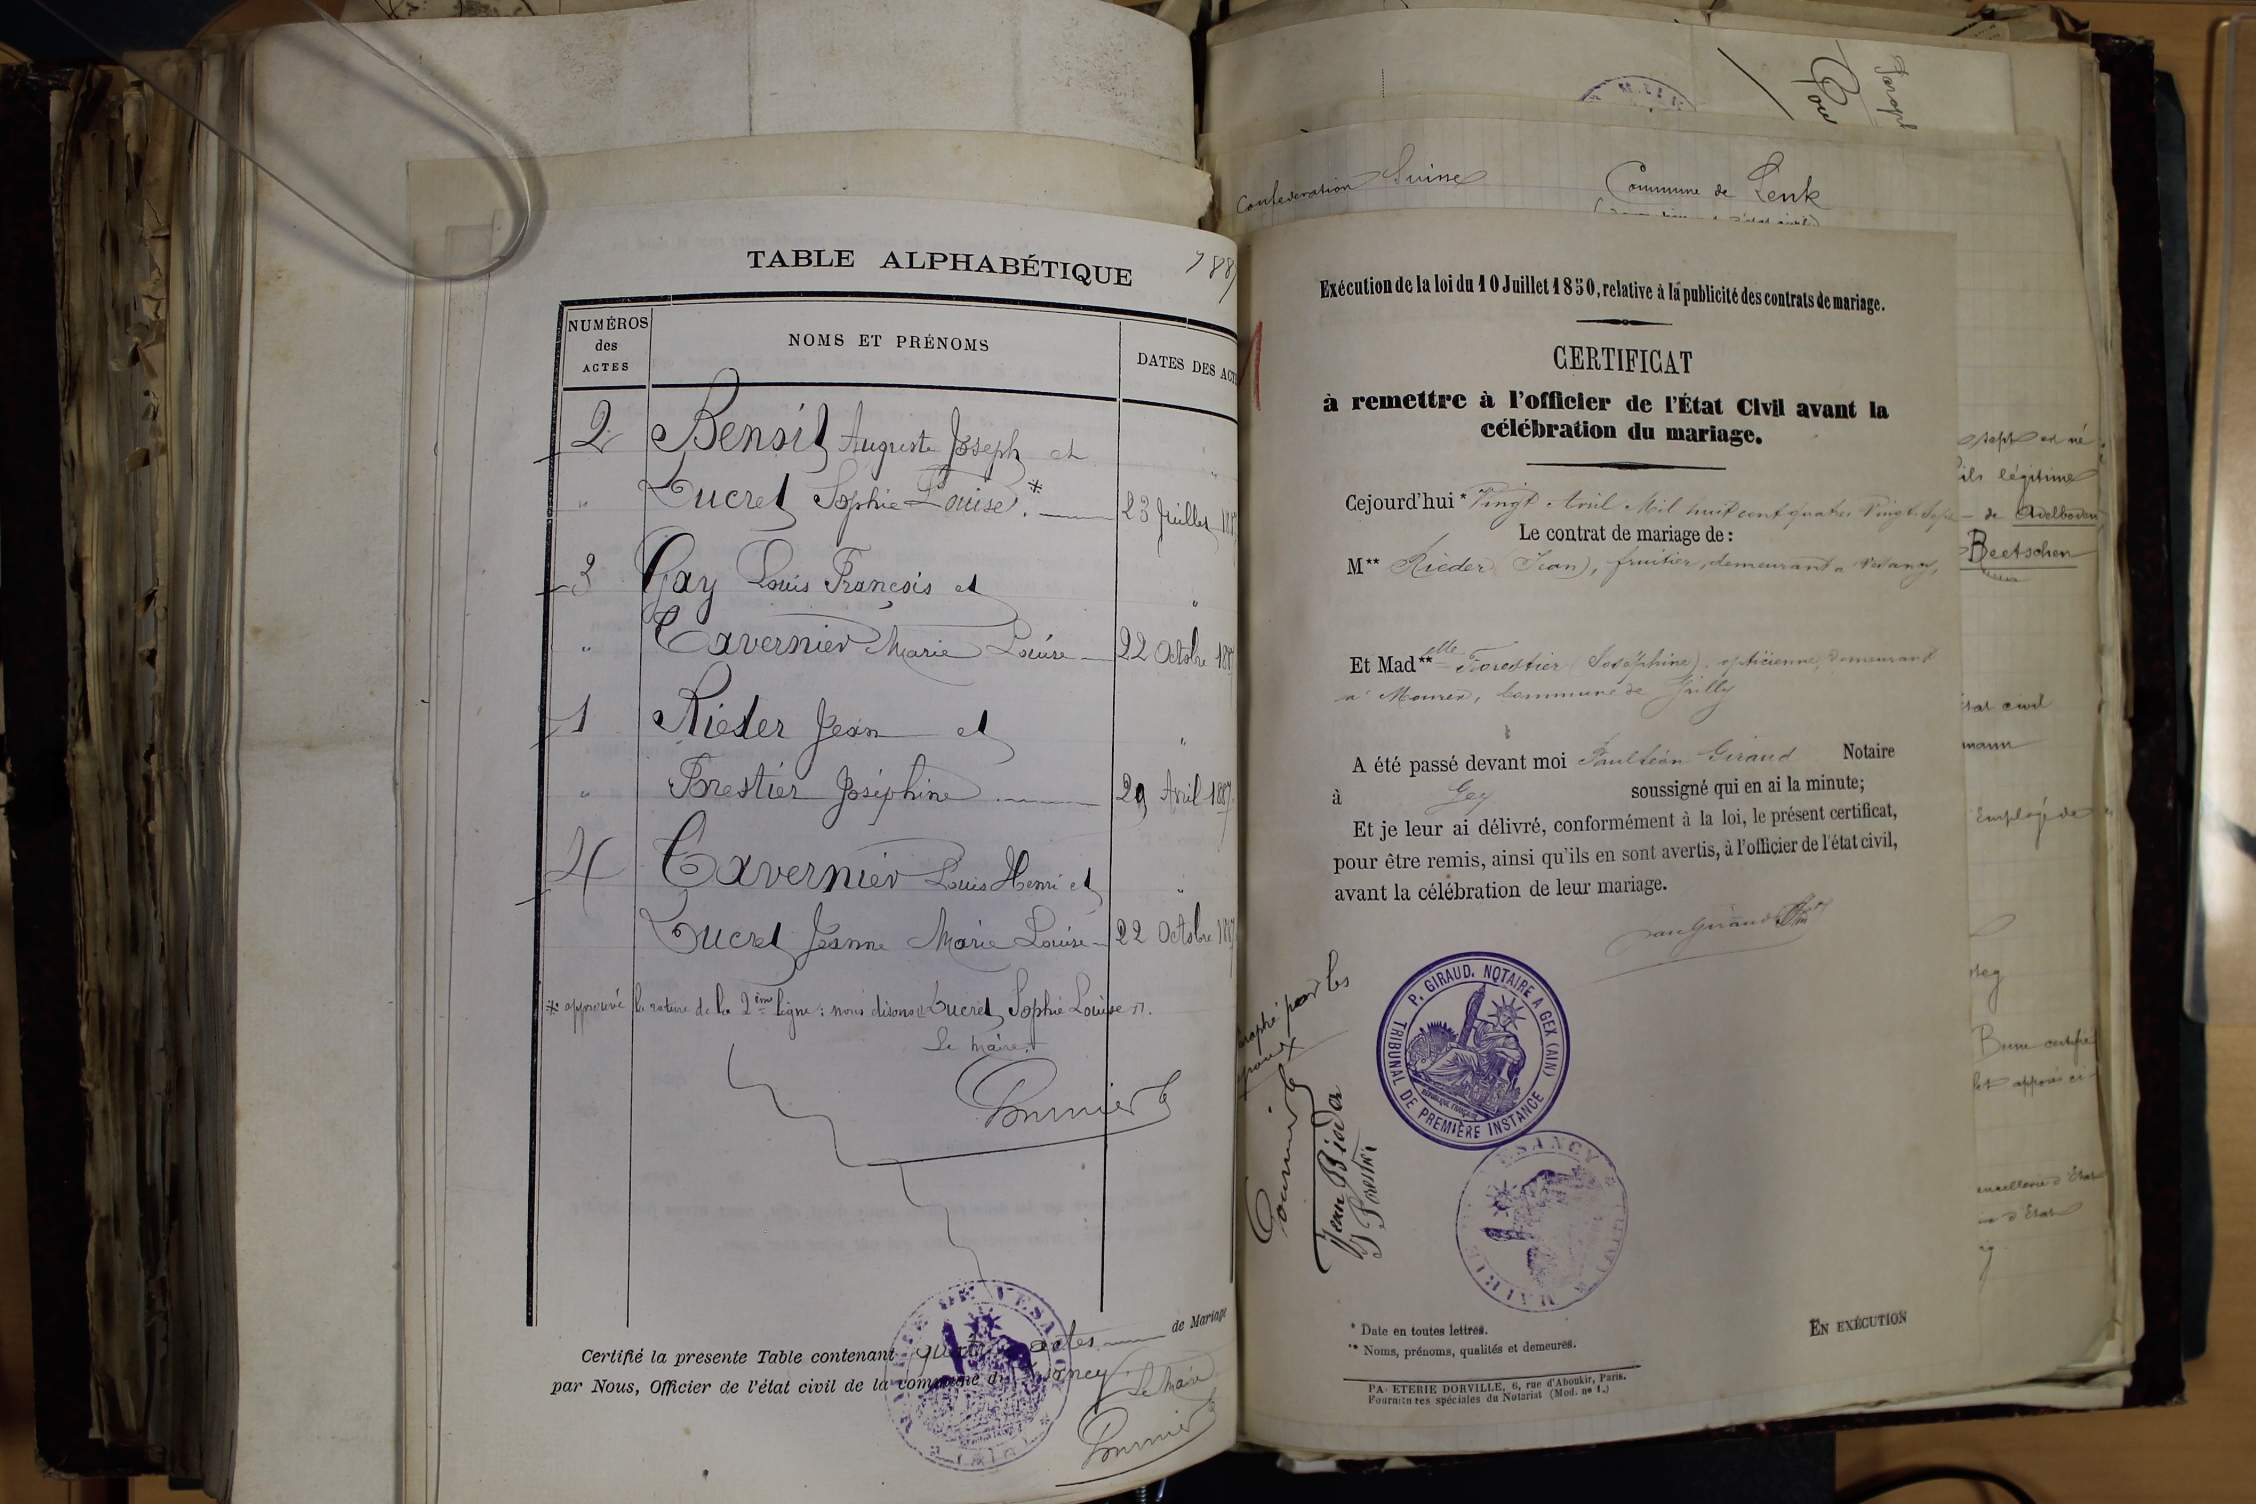 TABLE ALPHABÉTIQUE
188
NUMÉROS
des
ACTES
NOMS ET PRÉNOMS
DATES DES ACT
2 Benoit Auguste Joseph et
" Ducret Sophie Louise * 23 Juillet 188
3 Gay Louis François et "
" Tavernier Marie Louise 22 Octobre 188
1 Rieder Jean et "
" Forestier Joséphine 29 Avril 1887
4 Tavernier Louis Henri et "
Ducret Jeanne Marie Louise 22 Octobre 188
* approuvé la rature de la 2ème ligne : nous disons Ducret Sophie Louise
Le Maire
Certifié la presente Table contenant quatre actes de Mariage
par Nous, Officier de l'état civil de la commune de
Le Maire
MAIRIE DE VESANCY
Confédération Suisse
Commune de Lenk
Exécution de la loi du 10 Juillet 1850, relative à la publicité des contrats de mariage.
CERTIFICAT
à remettre à l'officier de l'État Civil avant la
célébration du mariage.
Cejourd'hui * Vingt Avril Mil huit cent quatre Vingt Sept
Le contrat de mariage de :
M** Rieder (Jean), fruitier, demeurant a Vesancy,
Et Mad** elle Forestier (Joséphine), opticienne, demeurant
a Mourex, Commune de Grilly
A été passé devant moi Paul Léon Giraud Notaire
à Gex soussigné qui en ai la minute;
Et je leur ai délivré, conformément à la loi, le présent certificat,
pour être remis, ainsi qu'ils en sont avertis, à l'officier de l'état civil,
avant la célébration de leur mariage.
P. GIRAUD. NOTAIRE A GEX (AIN)
TRIBUNAL DE PREMIÈRE INSTANCE
RÉPUBLIQUE FRANÇAISE
par les
Jean Rieder
J Forestier
* Date en toutes lettres.
** Noms, prénoms, qualités et demeures.
EN EXÉCUTION
PA ETERIE DORVILLE, 6, rue d'Aboukir, Paris.
Fournitures spéciales du Notariat (Mod. nº 1.)
né
fils légitime
de Adelboden
Beetschen
état civil
mann
Employé de
certifié
apposé ci-
d'Etat
d'Etat